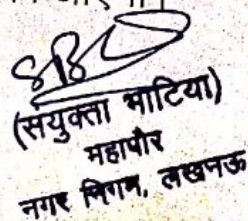 (सयुक्ता भाटिया)
महापौर
नगर निगम, लखनऊ